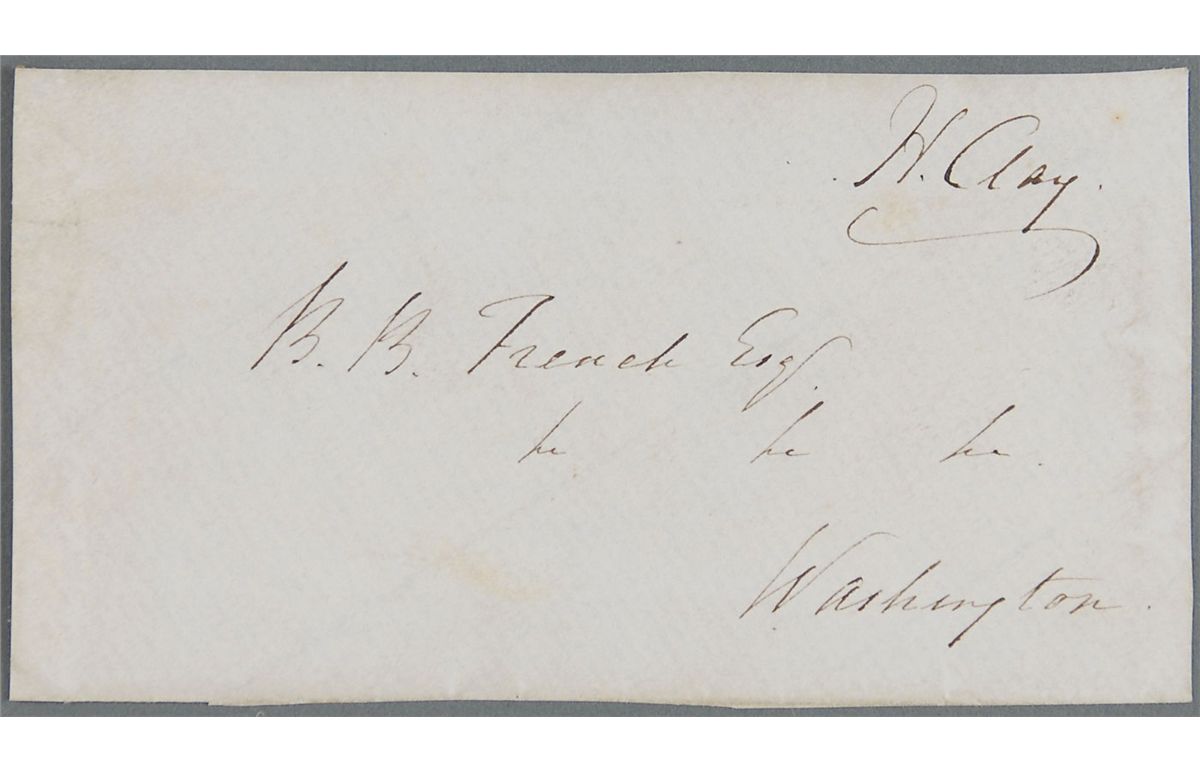 H. Clay.
B. B. French Esq.
&c &c &c.
Washington.